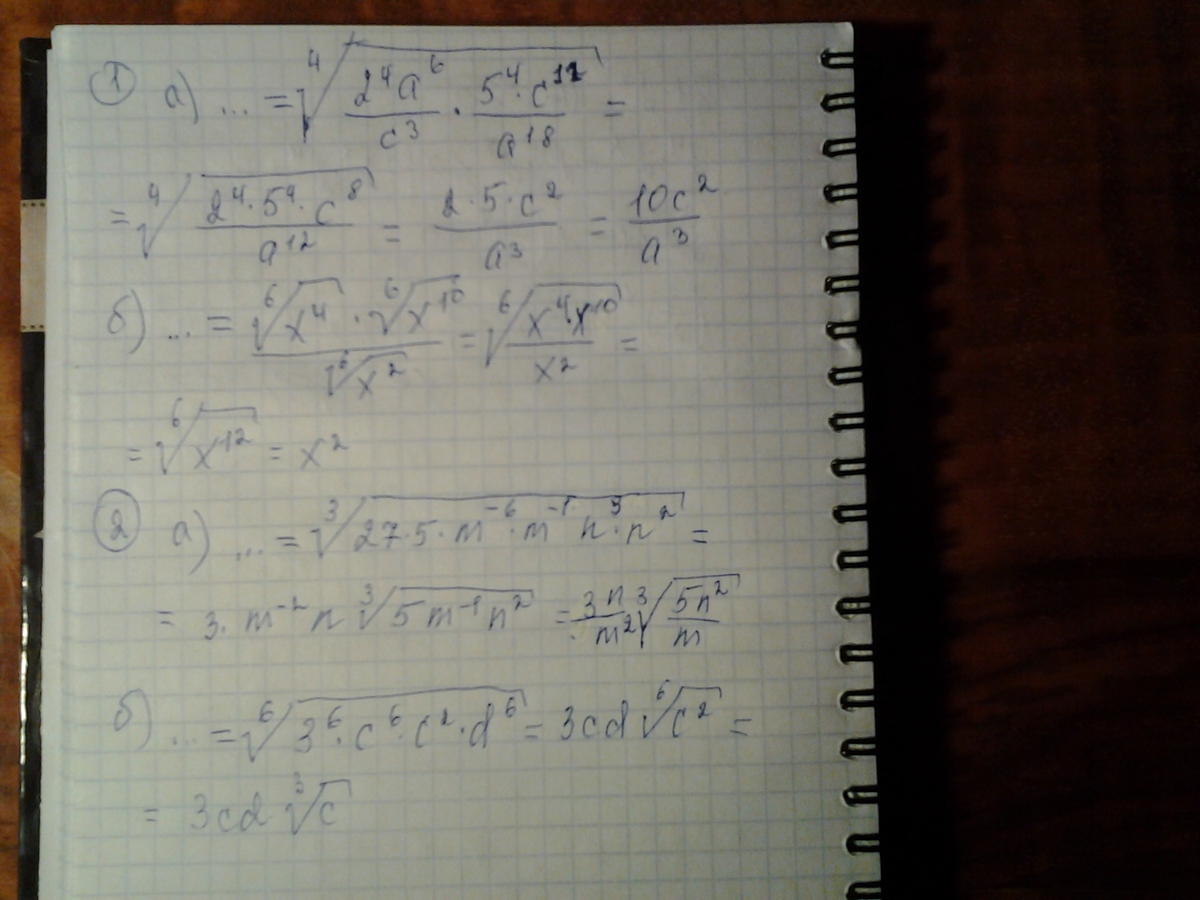 ① а) ... = ⁴√(2⁴a⁶/c³ · 5⁴·c¹¹/a¹⁸) =
= ⁴√(2⁴·5⁴·c⁸/a¹²) = 2·5·c²/a³ = 10c²/a³
б) ... = ⁶√x⁴ · ⁶√x¹⁰ / ⁶√x² = ⁶√(x⁴·x¹⁰/x²) =
= ⁶√x¹² = x²
② а) ... = ³√(27·5·m⁻⁶·m⁻¹ n³·n²) =
= 3·m⁻² n ³√(5m⁻¹n²) = 3n/m² ³√(5n²/m)
б) ... = ⁶√(3⁶·c⁶·c²·d⁶) = 3cd ⁶√c² =
= 3cd ³√c